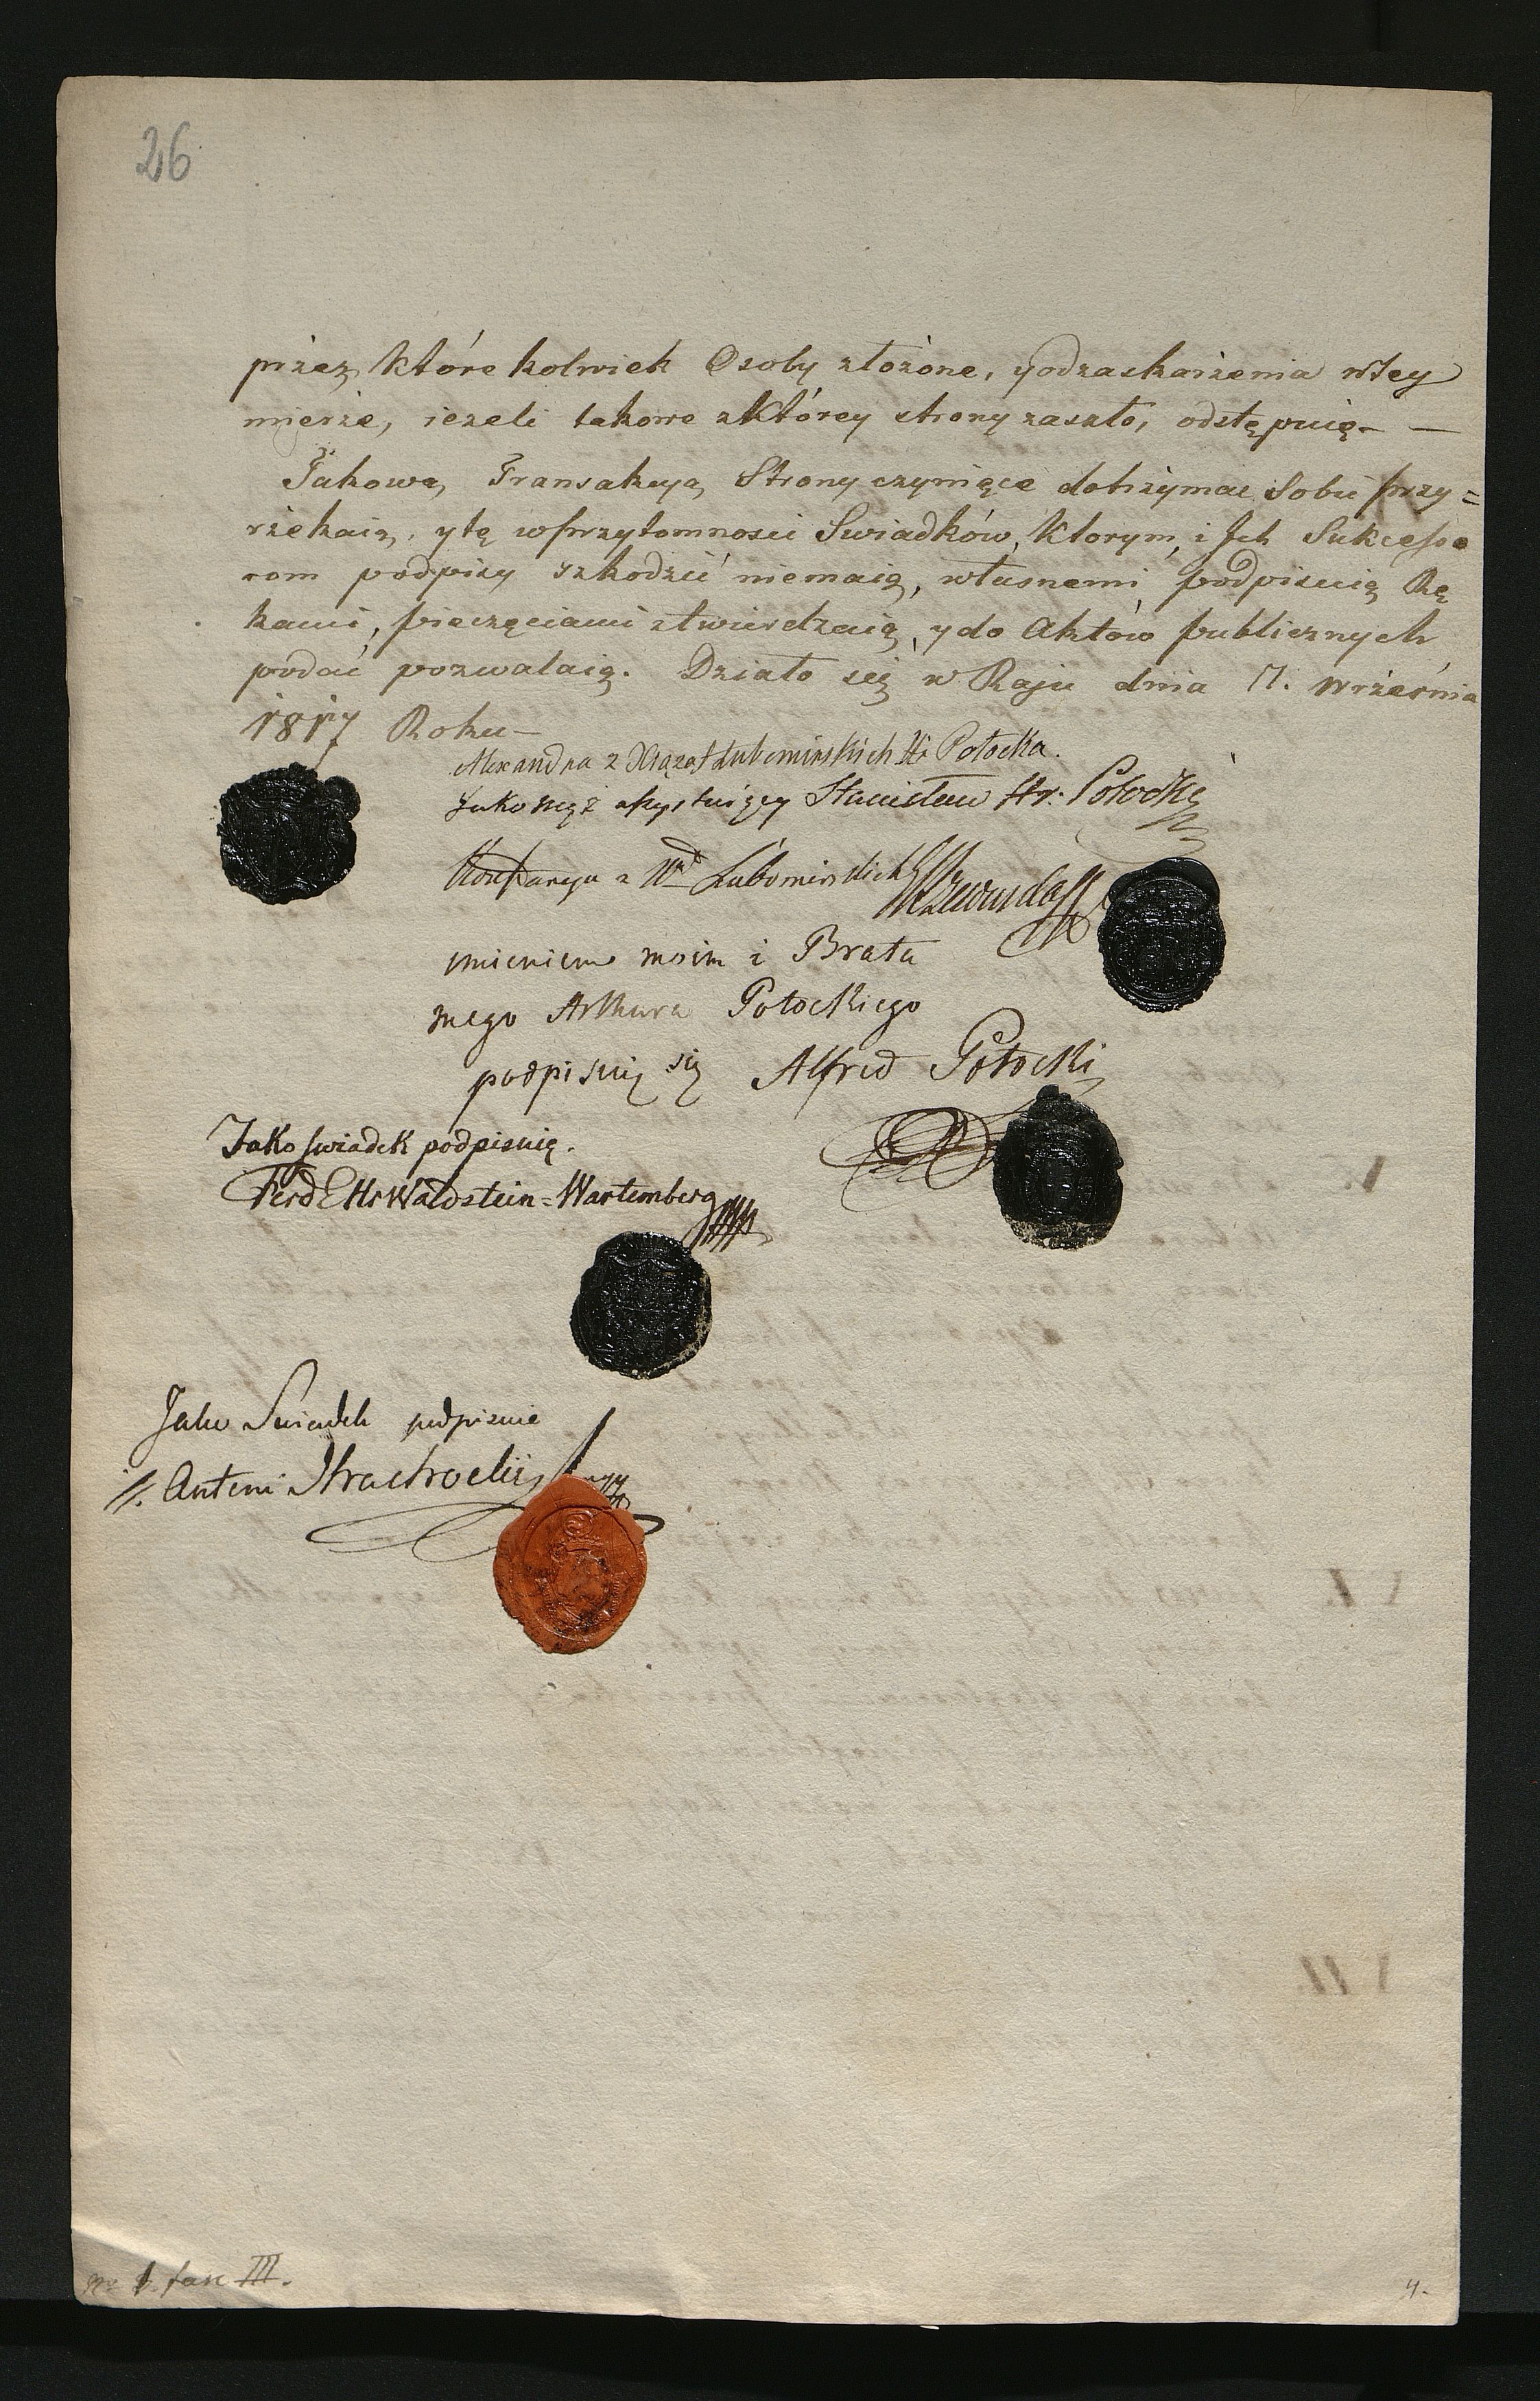 26
przez które kolwiek Osoby złożone, y od zaskarżenia w tey
mierze, jeżeli takowe z którey strony zaszło, odstępuią. —
Takową Transakcyą Strony czyniące dotrzymać Sobie przy=
rzekaią, y tę w przytomności Swiadków, Ktorym, i Jch Sukcesso
rom podpisy szkodzić niemaią, własnemi podpisuią Rę
kami, pieczęciami ztwierdzaią, y do Aktów publicznych
podać pozwalaią. Działo się w Raju dnia 7. Września
1817 Roku —
Alexandra z Xiążąt Lubomirskich Hr Potocka.
Jako mąż assystuiący Stanisław Hr: Potocki
Konstancya z Xd Lubomirskich Rzewuska
imieniem moim i Brata
mego Arthura Potockiego
podpisuię się Alfred Potocki
Jako swiadek podpisuię.
Ferd E Hr Waldstein=Wartemberg
Jako Swiadek podpisuie
Antoni
Nr 1. fasc III.
4.